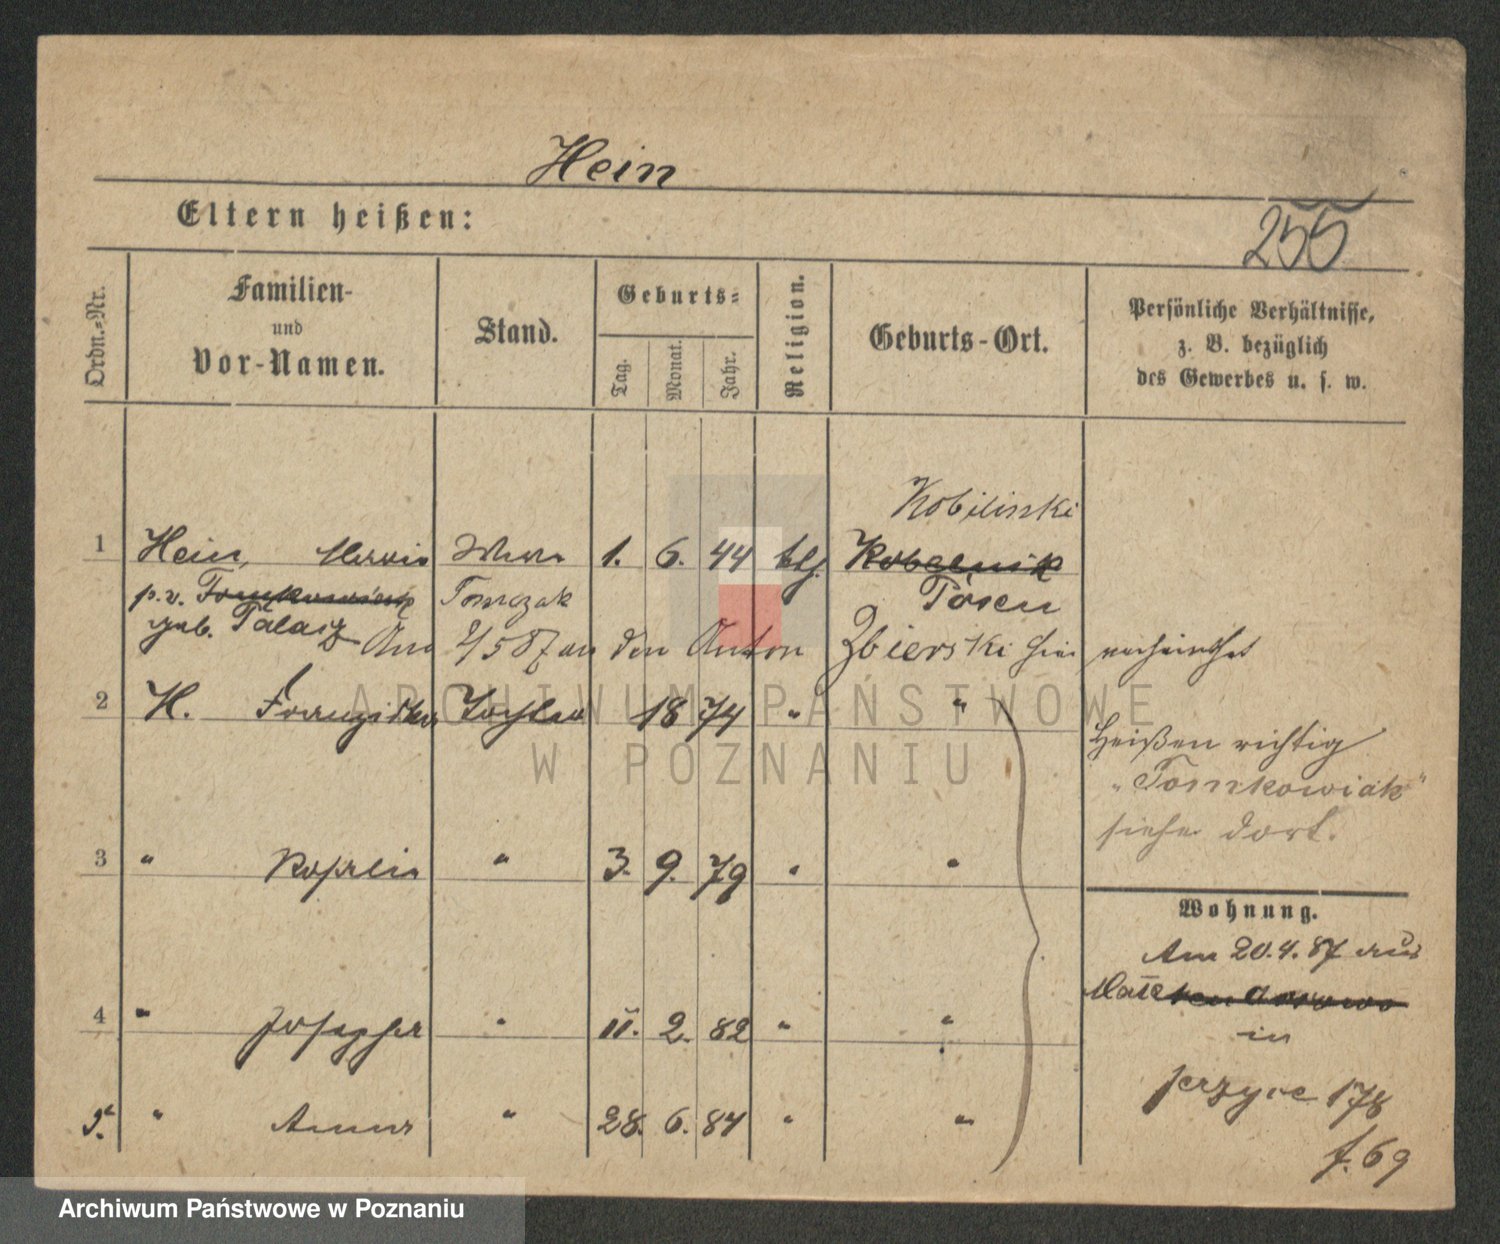 Hein
Eltern heißen:
255
Ordn.-Nr.
Familien-
und
Vor-Namen.
Stand.
Geburts-
Tag.
Monat.
Jahr.
Religion.
Geburts-Ort.
Persönliche Verhältnisse,
z. B. bezüglich
des Gewerbes u. s. w.
Kobilinski
1 Hein, Maria Wwe 1. 6. 44 ktl. Kobelnik
p.v. Tomkowiack Tomczak Posen
geb. Talasz
2/5 87 an den Anton Zbierski hier verheirathet
2 H. Franziska Tochter 18 74 " "
Heißen richtig
„Tomkowiak"
siehe dort.
3 " Rosalia " 3. 9. 79 " "
Wohnung.
Am 20.4.87 aus
4 " Josepha " 11. 2. 82 " "
in
Jerzyce 178
5. " Anna " 28. 6. 84 " "
f. 69
ARCHIWUM PAŃSTWOWE
W POZNANIU
Archiwum Państwowe w Poznaniu